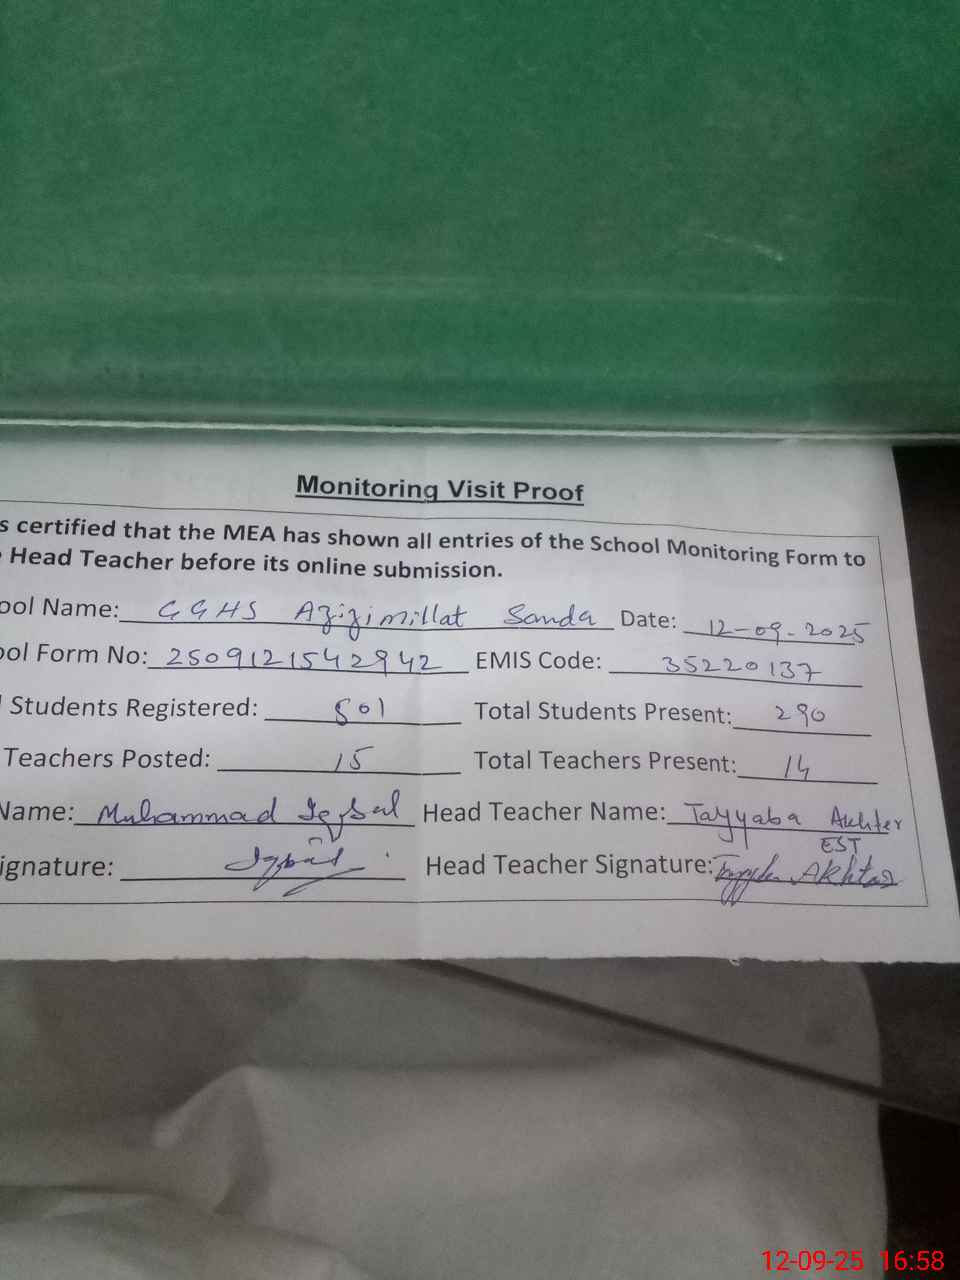 Monitoring Visit Proof
s certified that the MEA has shown all entries of the School Monitoring Form to
Head Teacher before its online submission.
ool Name: GGHS Azizimillat Sanda Date: 12-09-2025
ool Form No: 2509121542942 EMIS Code: 35220137
Students Registered: 501 Total Students Present: 290
Teachers Posted: 15 Total Teachers Present: 14
Name: Muhammad Iqbal Head Teacher Name: Tayyaba Akhter
EST
ignature: Iqbal Head Teacher Signature: Akhtar
12-09-25 16:58